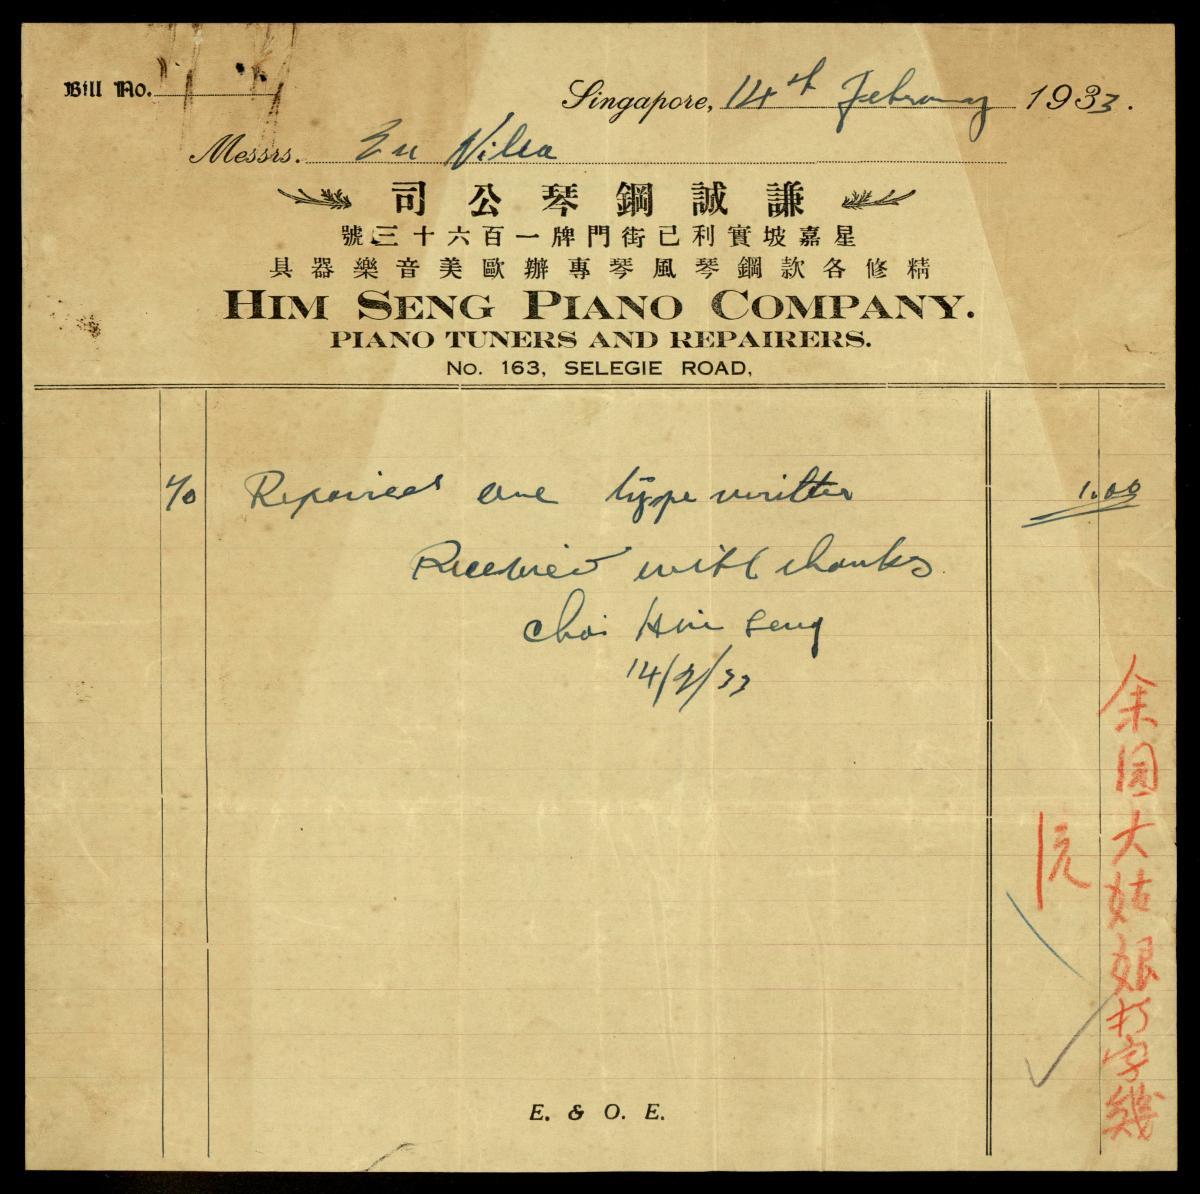 Bill No.
Singapore, 14th February 1933.
Messrs. Eu Villa
司公琴鋼誠謙
號三十六百一牌門街已利實坡嘉星
具器樂音美歐辦專琴風琴鋼款各修精
HIM SENG PIANO COMPANY.
PIANO TUNERS AND REPAIRERS.
No. 163, SELEGIE ROAD,
Repaired one type writter 1.00
Received with thanks
Choi Him Seng
14/2/33
余園大姑娘打字幾
1元
E. & O. E.